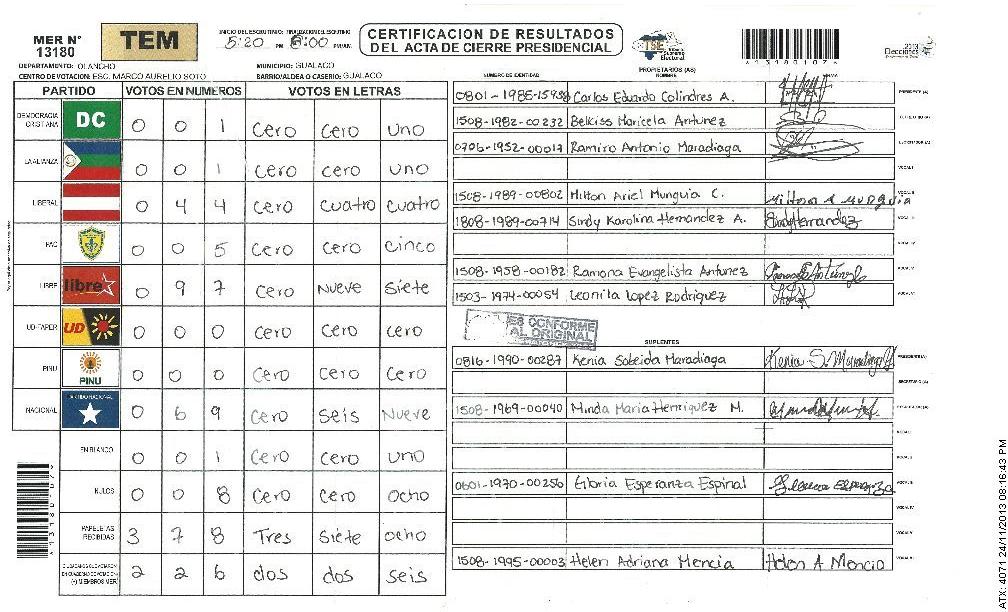 MER N° 13180
TEM
INICIO DEL ESCRUTINIO: FINALIZACION DEL ESCRUTINIO
5:20 PM 8:00 PM/AM.
CERTIFICACION DE RESULTADOS
DEL ACTA DE CIERRE PRESIDENCIAL
TSE
Tribunal Supremo Electoral
2013
Elecciones
1 3 1 8 0 1 0 7 4
DEPARTAMENTO: OLANCHO
MUNICIPIO: GUALACO
CENTRO DE VOTACION: ESC. MARCO AURELIO SOTO
BARRIO/ALDEA O CASERIO: GUALACO
PARTIDO VOTOS EN NUMEROS VOTOS EN LETRAS
DEMOCRACIA CRISTIANA DC 0 0 1 Cero Cero Uno
LA ALIANZA 0 0 1 Cero cero uno
LIBERAL 0 4 4 Cero Cuatro Cuatro
PAC 0 0 5 Cero Cero Cinco
LIBRE libre 0 9 7 Cero Nueve Siete
UD-FAPER UD 0 0 0 Cero Cero cero
PINU PINU 0 0 0 Cero Cero Cero
NACIONAL PARTIDO NACIONAL 0 6 9 Cero Seis Nueve
EN BLANCO 0 0 1 Cero Cero uno
NULOS 0 0 8 Cero Cero Ocho
PAPELETAS RECIBIDAS 3 7 8 Tres Siete ocho
CIUDADANOS QUE VOTARON EN CUADERNO DE VOTACION (+) MIEMBROS MER 2 2 6 dos dos seis
NUMERO DE IDENTIDAD PROPIETARIOS (AS) NOMBRE FIRMA
0801-1985-15938 Carlos Eduardo Colindres A. PRESIDENTE (A)
1508-1982-00232 Belkiss Maricela Antunez SECRETARIO (A)
0706-1952-00017 Ramiro Antonio Maradiaga ESCRUTADOR (A)
VOCAL I
1508-1989-00802 Milton Ariel Munguia C. Milton A Munguia VOCAL II
1808-1989-00714 Sindy Karolina Hernandez A. Sindy Hernandez VOCAL III
VOCAL IV
1508-1958-00182 Ramona Evangelista Antunez VOCAL V
1503-1974-00054 Leonila Lopez Rodriguez VOCAL VI
ES CONFORME AL ORIGINAL
SUPLENTES
0816-1990-00287 Kenia Sobeida Maradiaga Kenia S. Maradiaga PRESIDENTE (A)
SECRETARIO (A)
1508-1969-00040 Minda Maria Henriquez M. ESCRUTADOR (A)
VOCAL I
VOCAL II
0601-1970-00256 Gloria Esperanza Espinal VOCAL III
VOCAL IV
VOCAL V
1508-1995-00003 Helen Adriana Mencia Helen A Mencia VOCAL VI
ATX: 4071 24/11/2013 08:16:43 PM